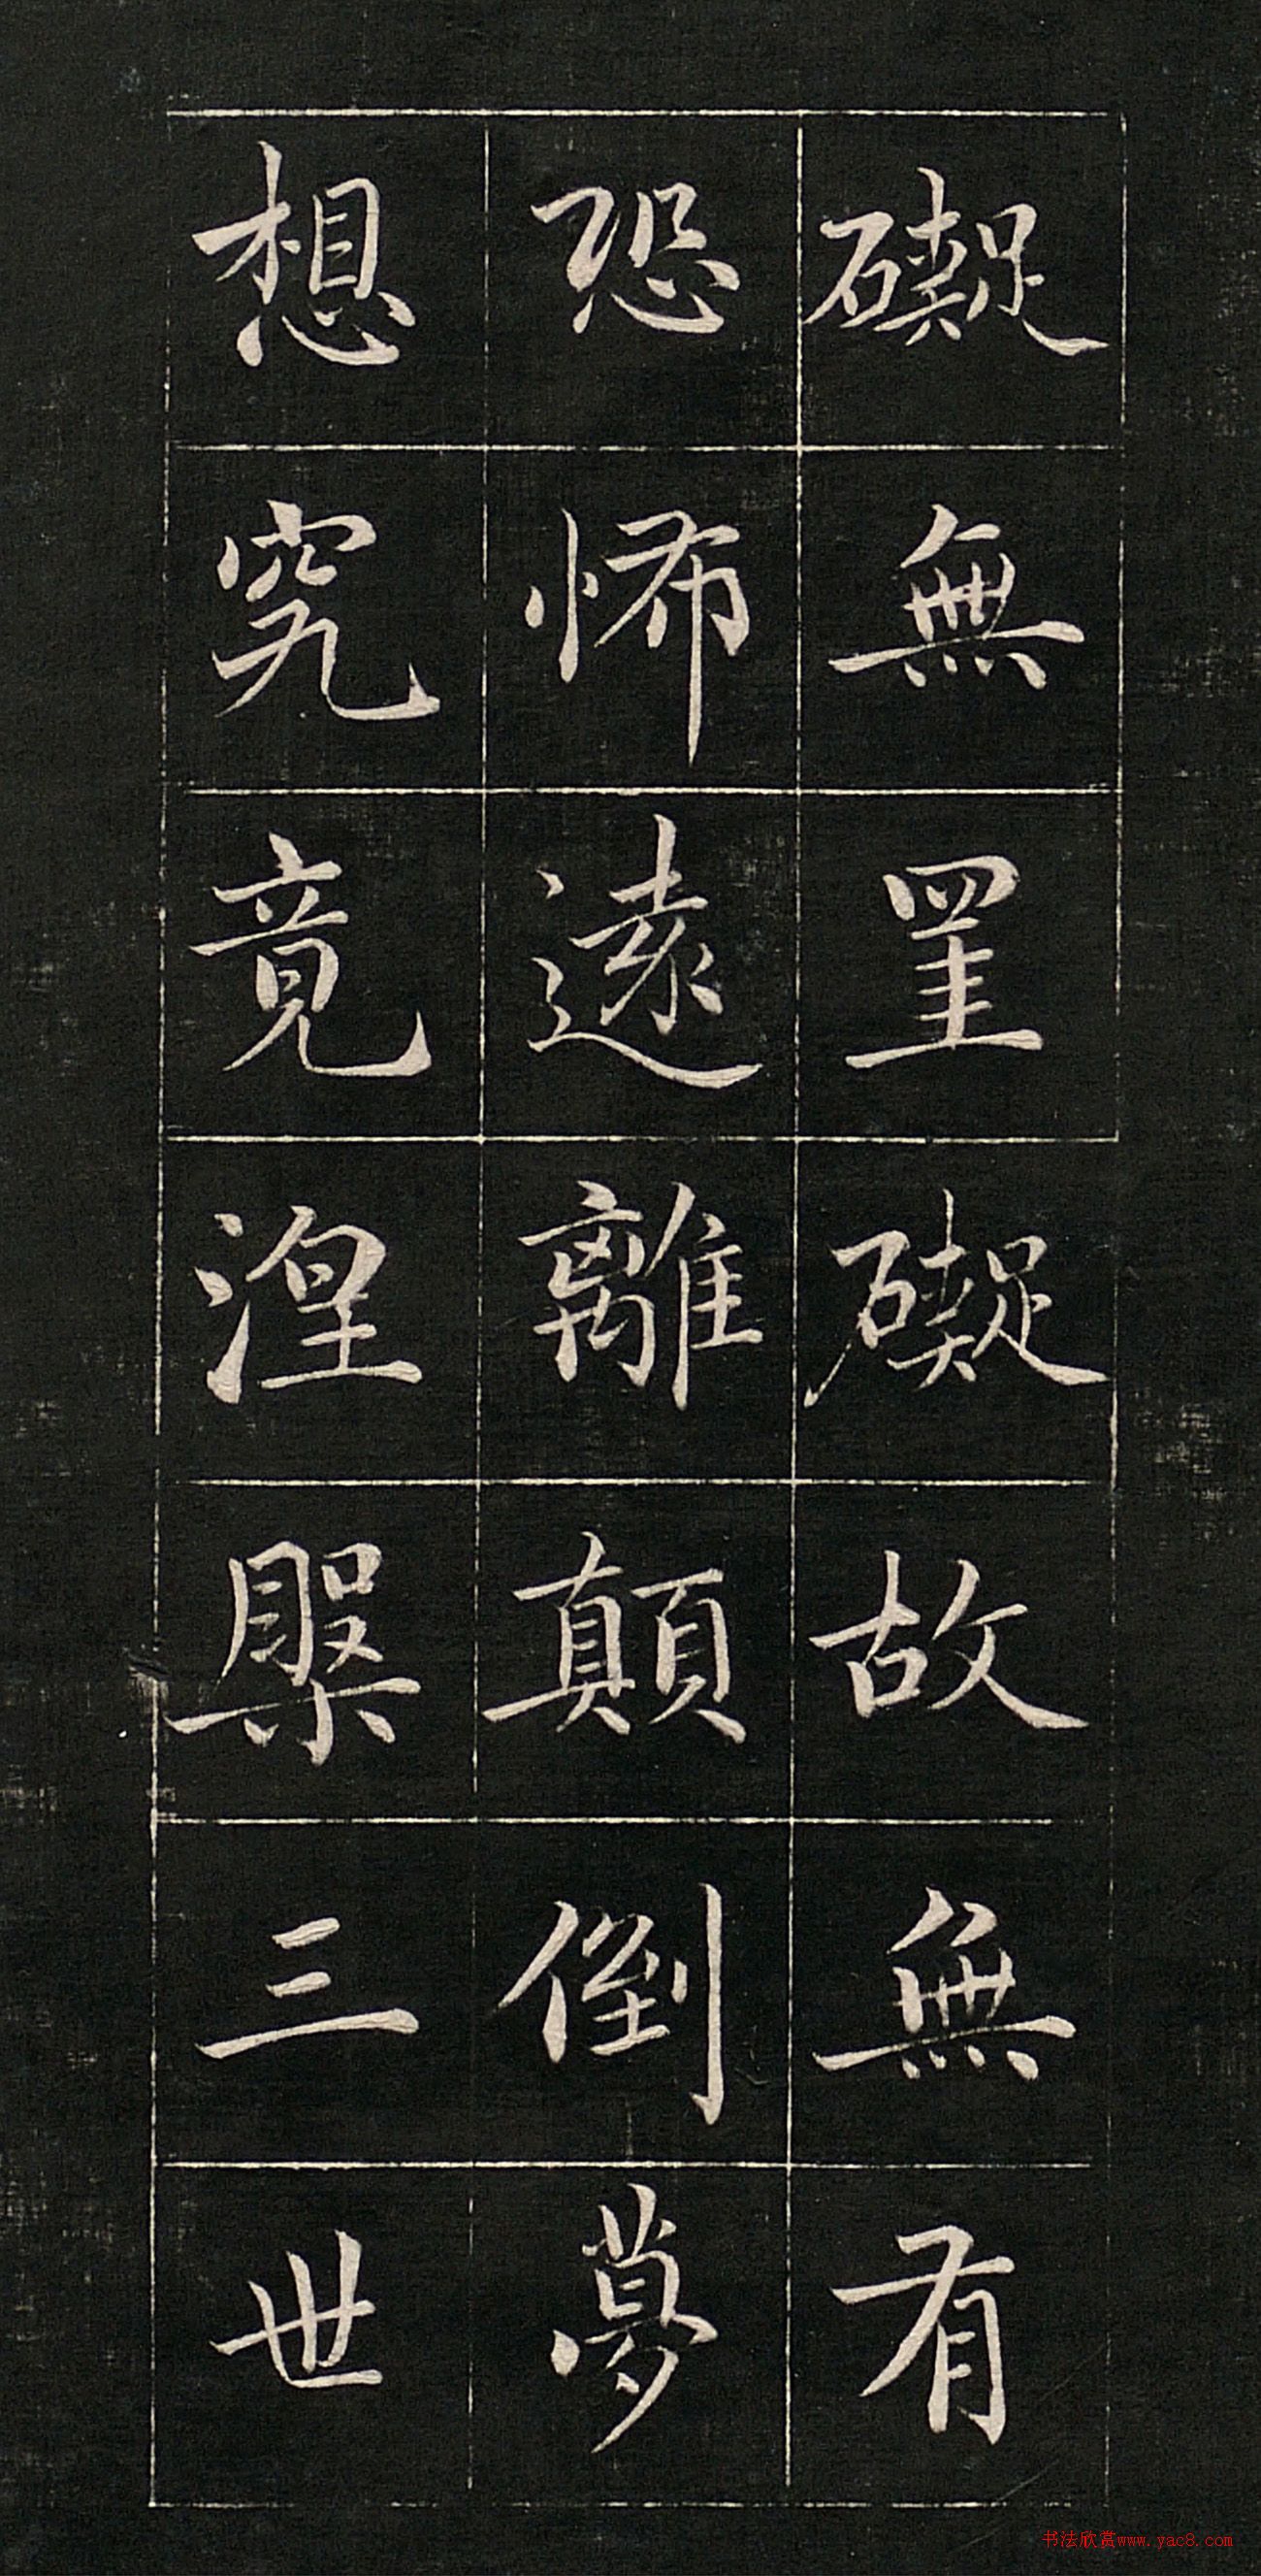 礙無罣礙故無有
恐怖遠離顛倒夢
想究竟涅槃三世
书法欣赏www.yac8.com